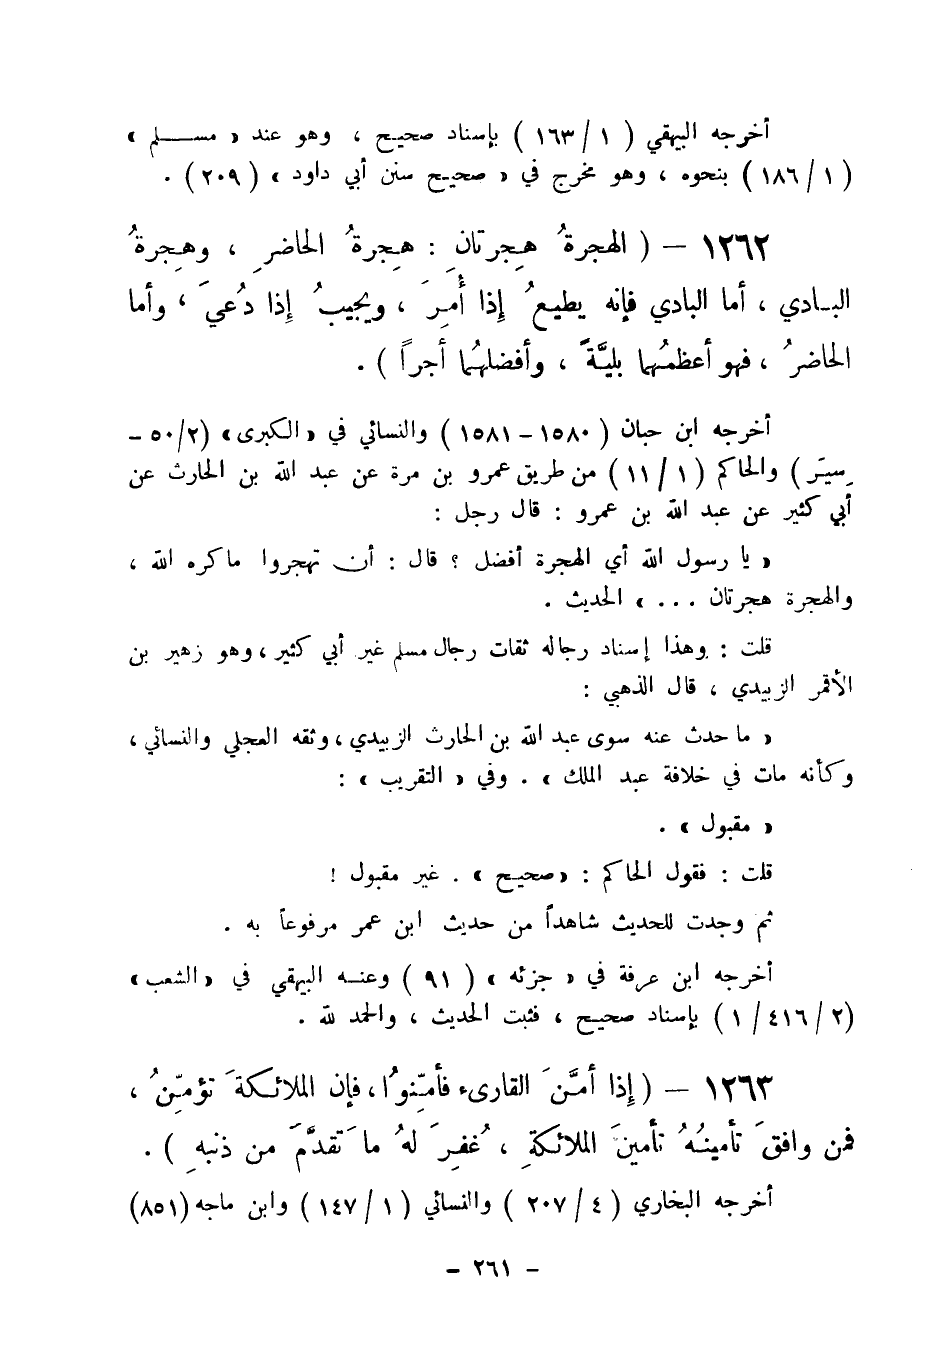 أخرجه البيهقي ( ١ / ١٦٣ ) بإسناد صحيح ، وهو عند « مسـلم »
( ١ / ١٨٦ ) بنحوه ، وهو مخرج في « صحيح سنن أبي داود » ( ٢٠٩ ) .
١٢٦٢ – ( الهجرةُ هِجرتانِ : هِجرةُ الحاضرِ ، وهِجرةُ
البـادي ، أما البادي فإنه يطيعُ إذا أُمِرَ ، ويجيبُ إِذا دُعيَ ، وأما
الحاضرُ ، فهو أعظمُهما بليَّةً ، وأفضلهُما أجراً ) .
أخرجه ابن حبان ( ١٥٨٠ – ١٥٨١ ) والنسائي في « الكبرى » (٥٠/٢ –
سيَر ) والحاكم ( ١ / ١١ ) من طريق عمرو بن مرة عن عبد الله بن الحارث عن
أبي كثير عن عبد الله بن عمرو : قال رجل :
« يا رسول الله أي الهجرة أفضل ؟ قال : أن تهجروا ماكره الله ،
والهجرة هجرتان ... » الحديث .
قلت : وهذا إسناد رجاله ثقات رجال مسلم غير أبي كثير ، وهو زهير بن
الأقمر الزبيدي ، قال الذهبي :
« ما حدث عنه سوى عبد الله بن الحارث الزبيدي ، وثقه العجلي والنسائي ،
وكأنه مات في خلافة عبد الملك » . وفي « التقريب » :
« مقبول » .
قلت : فقول الحاكم : « صحيح » . غير مقبول !
ثم وجدت للحديث شاهداً من حديث ابن عمر مرفوعاً به .
أخرجه ابن عرفة في « جزئه » ( ٩١ ) وعنـه البيهقي في « الشعب »
(٢ / ٤١٦ / ١ ) بإسناد صحيح ، فثبت الحديث ، والحمد لله .
١٢٦٣ – ( إِذا أمَّنَ القارىء فأمِّنوُا ، فإن الملائكةَ تؤمِّنُ ،
فمن وافقَ تأمينُهُ تأمينَ الملائكةِ ، غُفِرَ لهُ ما تَقدَّمَ من ذنبهِ ) .
أخرجه البخاري ( ٤ / ٢٠٧ ) والنسائي ( ١ / ١٤٧ ) وابن ماجه (٨٥١)
– ٢٦١ –